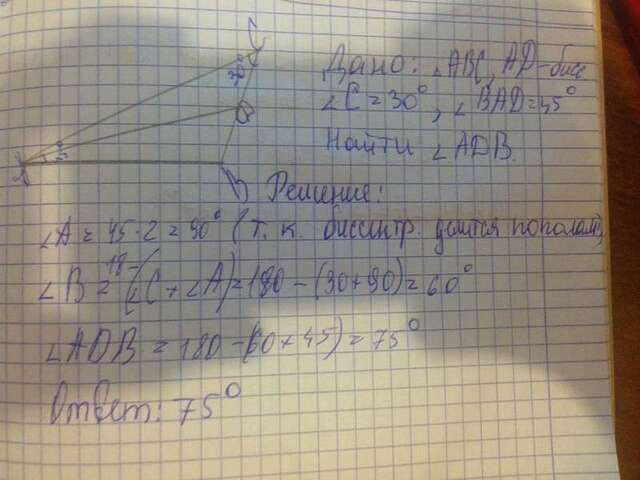 C
30°
D
A
B
Дано: ABC, AD-бисс
∠C = 30°, ∠BAD = 45°
Найти ∠ADB.
Решение:
∠A = 45·2 = 90° (т. к. биссектр. делится пополам)
∠B = 18-(∠C + ∠A) = 180 - (30+90) = 60°
∠ADB = 180 - (60 + 45) = 75°
Ответ: 75°